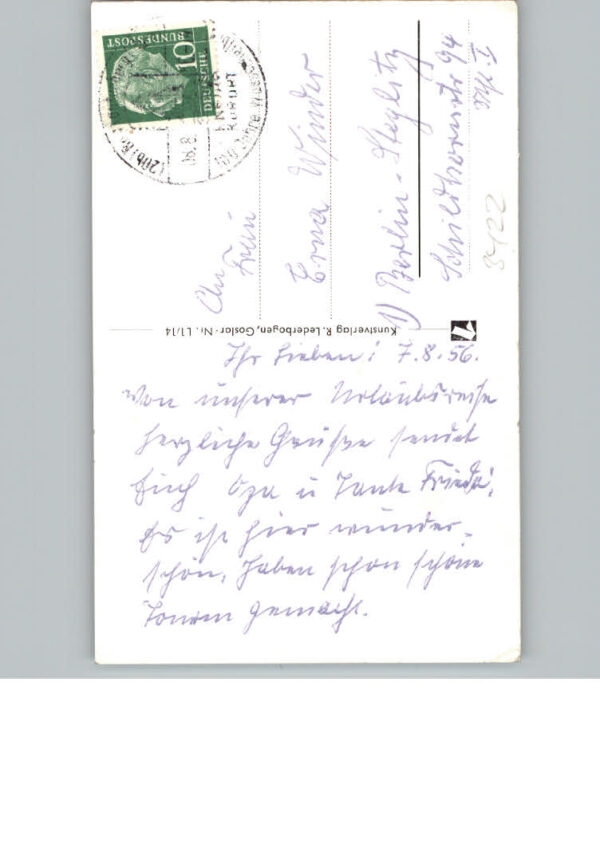 Ihr Lieben! 7.8.56.
Von unserer Urlaubsreise
herzliche Grüße sendet
Euch Opa u Tante Frieda.
Es ist hier wunder-
schön, haben schon schöne
Touren gemacht.
Kunstverlag R. Lederbogen, Goslar · Nr. L1/14
An
Frau
Erna Winder
1) Berlin-Steglitz
Schildhornstr 94
3422
DEUTSCHE
BUNDESPOST
10
KURORT